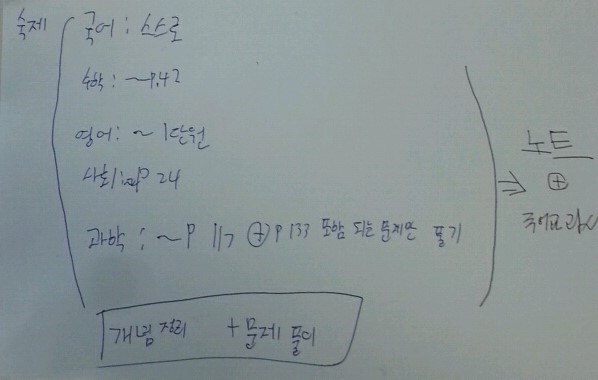 숙제
국어 : 스스로
수학 : ~P.42
영어 : ~ 1단원
사회 : P 24
과학 : ~ P 117 ⊕ P 133 포함 되는 문제만 풀기
개념 정리 + 문제 풀이
⇒ 노트
⊕
국어교과서